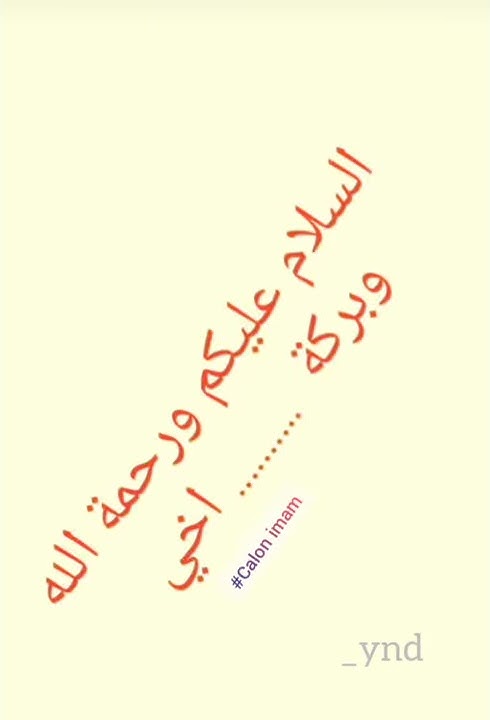 السلام عليكم ورحمة الله
وبركة .......... اخي
#Calon imam
_ynd